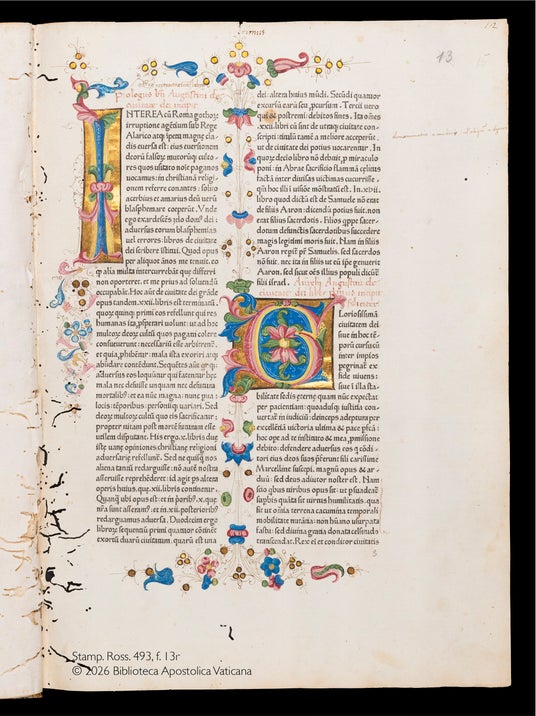 primus
13
Prologus bti Augustini de
ciuitate dei incipit
INTEREA cū Roma gothoꝝ
irruptione agētium sub Rege
Alarico atqꝫ īpetu magnę cla-
dis euersa est: eius euersionem
deorū falsoꝝ multoꝝqꝫ culto-
res quos usitato noīe paganos
uocamus: in christianā religi-
onem referre conantes: solito
acerbius et amarius deū uerū
blasphemare coeperūt. Vnde
ego exardescēs zelo domꝰ dei:
aduersus eorum blasphemias
uel errores: libros de ciuitate
dei scribere īstitui. Quod opus
per aliquot ānos me tenuit. eo
ꝙ alia multa intercurrebāt quę differri
non oporteret. et me prius ad soluendū
occupabāt. Hoc aūt de ciuitate dei grāde
opus tandem .xxii. libris est terminatū.
quoꝝ quinqꝫ primi eos refellunt qui res
humanas ita ꝓsperari uolunt: ut ad hoc
multoꝝ deoꝝ cultū quos pagani colere
consueuerunt: necessariū esse arbitrent̄.
et quia ꝓhibētur: mala ista exoriri atqꝫ
abūdare contēdunt. Sequētes aūt
aduersus eos loquūtur qui fatentur hęc
mala nec defuisse unquam nec defutura
mortalibꝰ: et ea nūc magna: nunc parua:
locis: tēporibus: personisqꝫ uariari. Sed
deoꝝ multoꝝ cultū quo eis sacrificatur:
propter uitam post mortē futuram esse
utilem disputant. His ergo .x. libris due
istę uanę opiniones christianę religioni
aduersarię refellunt̄. Sed ne quisqꝫ nos
aliena tantū redarguisse: nō aūt nostra
asseruisse reprehēderet: id agit ps altera
operis huius. quę .xii. libris continetur.
Quanqꝫ ubi opus est: et in poribꝰ .x. quę
nr̄a sunt asseramꝰ: et in .xii. posterioribꝰ
redarguamus aduersa. Duodecim ergo
libroꝝ sequentiū primi quatuor cōtinēt
exortū duarū ciuitatum. quarū est una
dei: altera huius mūdi. Secūdi quatuor
excursū earū seu ꝓcursum. Tercii uero
qui et postremi: debitos fines. Ita oēs
.xxii. libri cū sint de utraqꝫ ciuitate con-
scripti: titulū tamē a meliore acceperūt.
ut de ciuitate dei potius uocarentur. In
quoꝝ decīo libro nō debuit ꝓ miraculo
poni: in Abrae sacrificio flāmā cęlitus
factā inter diuisas uictimas cucurrisse.
qm̄ hoc illi ī uisiōe mōstratū est. In .xvii.
libro quod dictū est de Samuele nō erat
de filiis Aaron: dicendū potius fuit. non
erat filius sacerdotis. Filios qppe sacer-
dotum defunctis sacerdotibus succedere
magis legitimi moris fuit. Nam in filiis
Aaron repit̄ pr̄ Samuelis. sed sacerdos
nō fuit. nec ita in filiis ut eū ipe genuerit
Aaron. sed sicut oēs illius populi dicūt̄
filii israel. Aurelii Augustini de
ciuitate dei liber primus incipit
feliciter
GLoriosissimā
ciuitatem dei
siue in hoc tē-
porū cursu cū
inter impios
peregrinat̄ ex
fide uiuens:
siue ī illa sta-
bilitate sedis eternę quam nūc expectat
per pacientiam: quoadusqꝫ iusticia con-
uertat̄ in iudiciū: deinceps adeptura per
excellētiā uictoria ultima & pace ꝑfcā:
hoc ope ad te instituto & mea ꝓmissione
debito: defendere aduersus eos q cōdi-
tori eius deos suos p̄ferunt: fili carissime
Marcelline suscepi. magnū opus & ar-
duū: sed deus adiutor noster est. Nam
scio qbus uiribus opus sit: ut ꝑsuadeat̄
supbis quāta sit uirtus humilitatis. qua
fit ut oīnia terrena cacumina temporali
mobilitate nutātia: non hūano usurpata
fastu: sed diuina gratia donata celsitudo
transcendat. Rex ei et conditor ciuitatis
Stamp. Ross. 493, f. 13r
© 2026 Biblioteca Apostolica Vaticana